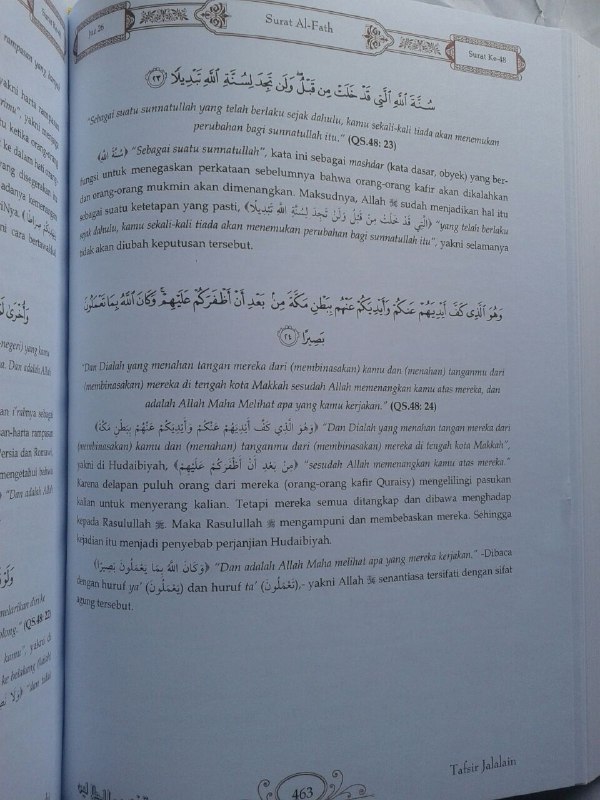 Juz 26
Surat Al-Fath
Surat Ke-48
سُنَّةَ اللَّهِ الَّتِي قَدْ خَلَتْ مِن قَبْلُ وَلَن تَجِدَ لِسُنَّةِ اللَّهِ تَبْدِيلًا ﴿٢٣﴾
"Sebagai suatu sunnatullah yang telah berlaku sejak dahulu, kamu sekali-kali tiada akan menemukan
perubahan bagi sunnatullah itu." (QS.48: 23)
﴿سُنَّةَ اللَّهِ﴾ "Sebagai suatu sunnatullah", kata ini sebagai mashdar (kata dasar, obyek) yang ber-
fungsi untuk menegaskan perkataan sebelumnya bahwa orang-orang kafir akan dikalahkan
dan orang-orang mukmin akan dimenangkan. Maksudnya, Allah ﷻ sudah menjadikan hal itu
sebagai suatu ketetapan yang pasti, ﴿الَّتِي قَدْ خَلَتْ مِنْ قَبْلُ وَلَنْ تَجِدَ لِسُنَّةِ اللَّهِ تَبْدِيلًا﴾ "yang telah berlaku
sejak dahulu, kamu sekali-kali tiada akan menemukan perubahan bagi sunnatullah itu", yakni selamanya
tidak akan diubah keputusan tersebut.
وَهُوَ الَّذِي كَفَّ أَيْدِيَهُمْ عَنكُمْ وَأَيْدِيَكُمْ عَنْهُم بِبَطْنِ مَكَّةَ مِنْ بَعْدِ أَنْ أَظْفَرَكُمْ عَلَيْهِمْ وَكَانَ اللَّهُ بِمَا تَعْمَلُونَ
بَصِيرًا ﴿٢٤﴾
"Dan Dialah yang menahan tangan mereka dari (membinasakan) kamu dan (menahan) tanganmu dari
(membinasakan) mereka di tengah kota Makkah sesudah Allah memenangkan kamu atas mereka, dan
adalah Allah Maha Melihat apa yang kamu kerjakan." (QS.48: 24)
﴿وَهُوَ الَّذِي كَفَّ أَيْدِيَهُمْ عَنْكُمْ وَأَيْدِيَكُمْ عَنْهُمْ بِبَطْنِ مَكَّةَ﴾ "Dan Dialah yang menahan tangan mereka dari
(membinasakan) kamu dan (menahan) tanganmu dari (membinasakan) mereka di tengah kota Makkah",
yakni di Hudaibiyah, ﴿مِنْ بَعْدِ أَنْ أَظْفَرَكُمْ عَلَيْهِمْ﴾ "sesudah Allah memenangkan kamu atas mereka."
Karena delapan puluh orang dari mereka (orang-orang kafir Quraisy) mengelilingi pasukan
kalian untuk menyerang kalian. Tetapi mereka semua ditangkap dan dibawa menghadap
kepada Rasulullah ﷺ. Maka Rasulullah ﷺ mengampuni dan membebaskan mereka. Sehingga
kejadian itu menjadi penyebab perjanjian Hudaibiyah.
﴿وَكَانَ اللَّهُ بِمَا يَعْمَلُونَ بَصِيرًا﴾ "Dan adalah Allah Maha melihat apa yang mereka kerjakan." -Dibaca
dengan huruf ya' (يَعْمَلُونَ) dan huruf ta' (تَعْمَلُونَ),- yakni Allah ﷻ senantiasa tersifati dengan sifat
agung tersebut.
Tafsir Jalalain
463